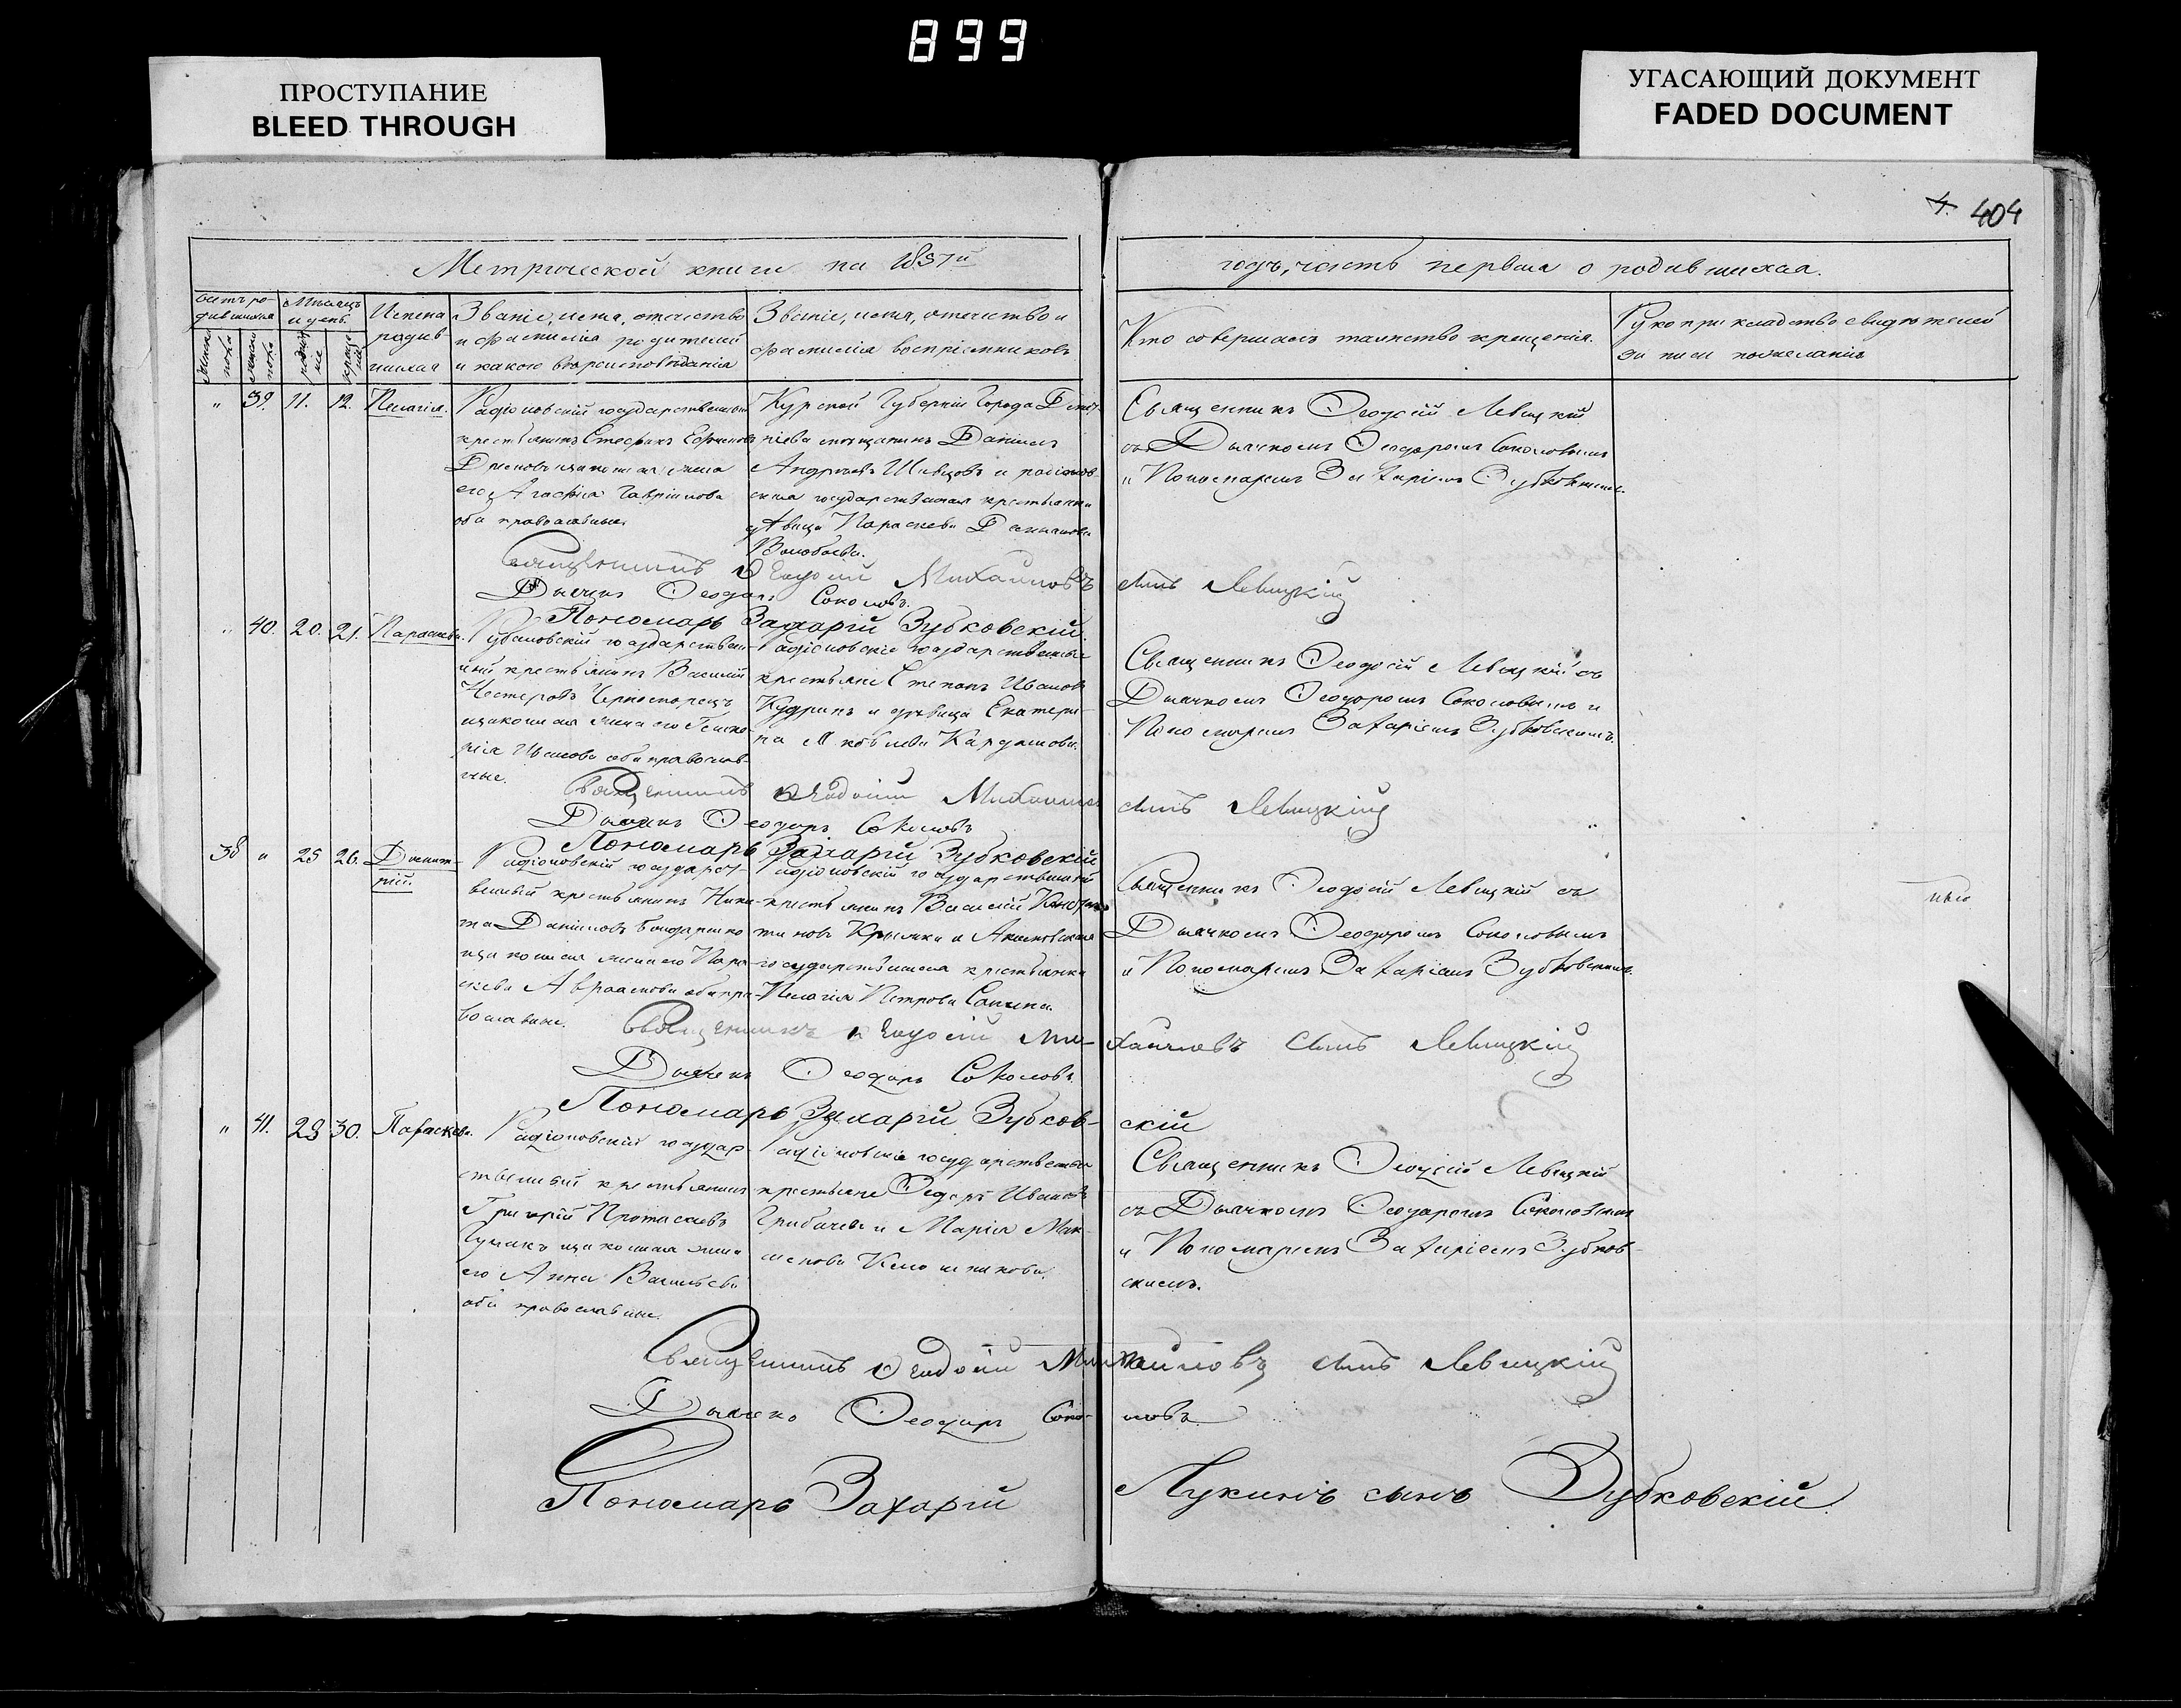 899
ПРОСТУПАНИЕ
BLEED THROUGH
УГАСАЮЩИЙ ДОКУМЕНТ
FADED DOCUMENT
4. 404
Метрической книги на 1857й
годъ, часть первая о родившихся.
Счетъ ро-
дившихся
Мѣсяцъ
и день.
Имена
родив
шихся
Званіе, имя, отечество
и фамилія родителей
и какого вѣроисповѣданія
Званіе, имя, отечество и
фамилія воспріемниковъ
Кто совершалъ таинство крещенія.
Рукоприкладство свидѣтелей
записи по желанію
" 39. 11. 12. Пелагія.
Радіоновскій государственный
крестьянинъ Стефанъ
законная жена
его Агафія Гавріилова
оба православные.
Курской Губерніи Города Дмит-
ріева мѣщанинъ Даніилъ
Андреевъ Шевцовъ и радіонов-
ская государственная крестьянка
дѣвица Параскева
Волобоева.
Священникъ Ѳеодосій Левицкій
съ Дьячкомъ Ѳеодоромъ Соколовымъ
и Пономаремъ Захаріемъ Зубковскимъ.
Священникъ Ѳеодосій Михайловъ сынъ Левицкій
Дьячекъ Ѳеодоръ Соколовъ.
Пономарь Захарій Зубковскій.
" 40. 20. 21. Параскева.
государствен-
ный крестьянинъ Василій
Нестеровъ Черногорецъ
законная жена его Глике-
рія Иванова оба православ-
ные.
Радіоновскіе государственные
крестьяне Степанъ Ивановъ
Кудринъ и дѣвица Екатери-
на Яковлева Кардашова.
Священникъ Ѳеодосій Левицкій съ
Дьячкомъ Ѳеодоромъ Соколовымъ и
Пономаремъ Захаріемъ Зубковскимъ.
Священникъ Ѳеодосій Михайловъ сынъ Левицкій
Дьячекъ Ѳеодоръ Соколовъ
Пономарь Захарій Зубковскій
38 " 25 26. Димит-
рій.
Радіоновскій государст-
венный крестьянинъ Ники-
та Даніиловъ Бондаренко
законная жена его Пара-
скева Авраамова оба пра-
вославные.
Радіоновскій государственный
крестьянинъ Василій
Крымка и
государственная крестьянка
Пелагія Петрова
Священникъ Ѳеодосій Левицкій съ
Дьячкомъ Ѳеодоромъ Соколовымъ
и Пономаремъ Захаріемъ Зубковскимъ.
Священникъ Ѳеодосій Михайловъ сынъ Левицкій
Дьячекъ Ѳеодоръ Соколовъ.
Пономарь Захарій Зубков-
скій
" 41. 29 30. Параскева.
Радіоновскій государ-
ственный крестьянинъ
Григорій
законная жена
его Анна Васильева
оба православные.
Радіоновскіе государственные
крестьяне Ѳедоръ Ивановъ
Грибачевъ и Марія Мак-
симова
Священникъ Ѳеодосій Левицкій
съ Дьячкомъ Ѳеодоромъ Соколовымъ
и Пономаремъ Захаріемъ Зубков-
скимъ.
Священникъ Ѳеодосій Михайловъ сынъ Левицкій
Дьячекъ Ѳеодоръ Соко- ловъ
Пономарь Захарій Лукинъ сынъ Зубковскій.